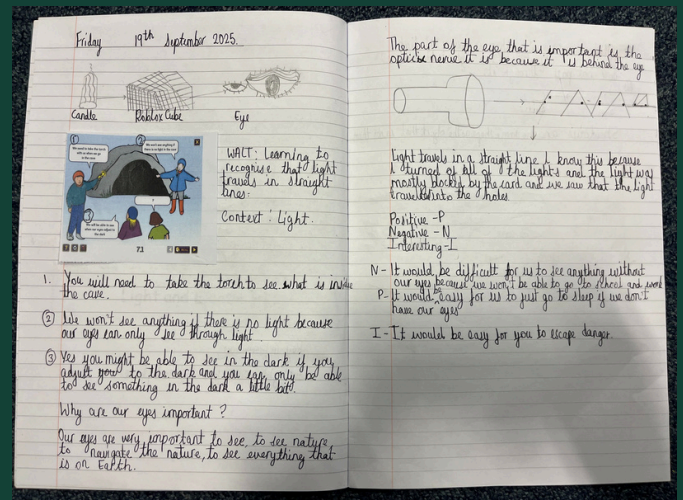 Friday 19th September 2025.
Candle Roblox Cube Eye
1
2
We need to take the torch
with us when we go
in the cave.
We won't see anything if
there is no light in the cave.
3
We will be able to see
when our eyes adjust to
the dark
7.1
WALT: Learning to
recognise that light
travels in straight
lines.
Context: Light.
1. You will need to take the torch to see what is inside
the cave.
2 We won't see anything if there is no light because
our eyes can only see through light.
3 Yes you might be able to see in the dark if you
adjust you to the dark and you can only be able
to see something in the dark a little bit.
Why are our eyes important?
Our eyes are very important to see, to see nature,
to navigate the nature, to see everything that
is on Earth.
The part of the eye that is important is the
optic nerve it is because it is behind the eye
Light travels in a straight line I know this because
I turned of all of the lights and the light was
mostly blocked by the card and we saw that the light
travels into the holes.
Positive -P
Negative -N
Interesting-I
N- It would be difficult for us to see anything without
our eyes because we won't be able to go to school and work
P- It would be easy for us to just go to sleep if we don't
have our eyes
I- It would be easy for you to escape danger.